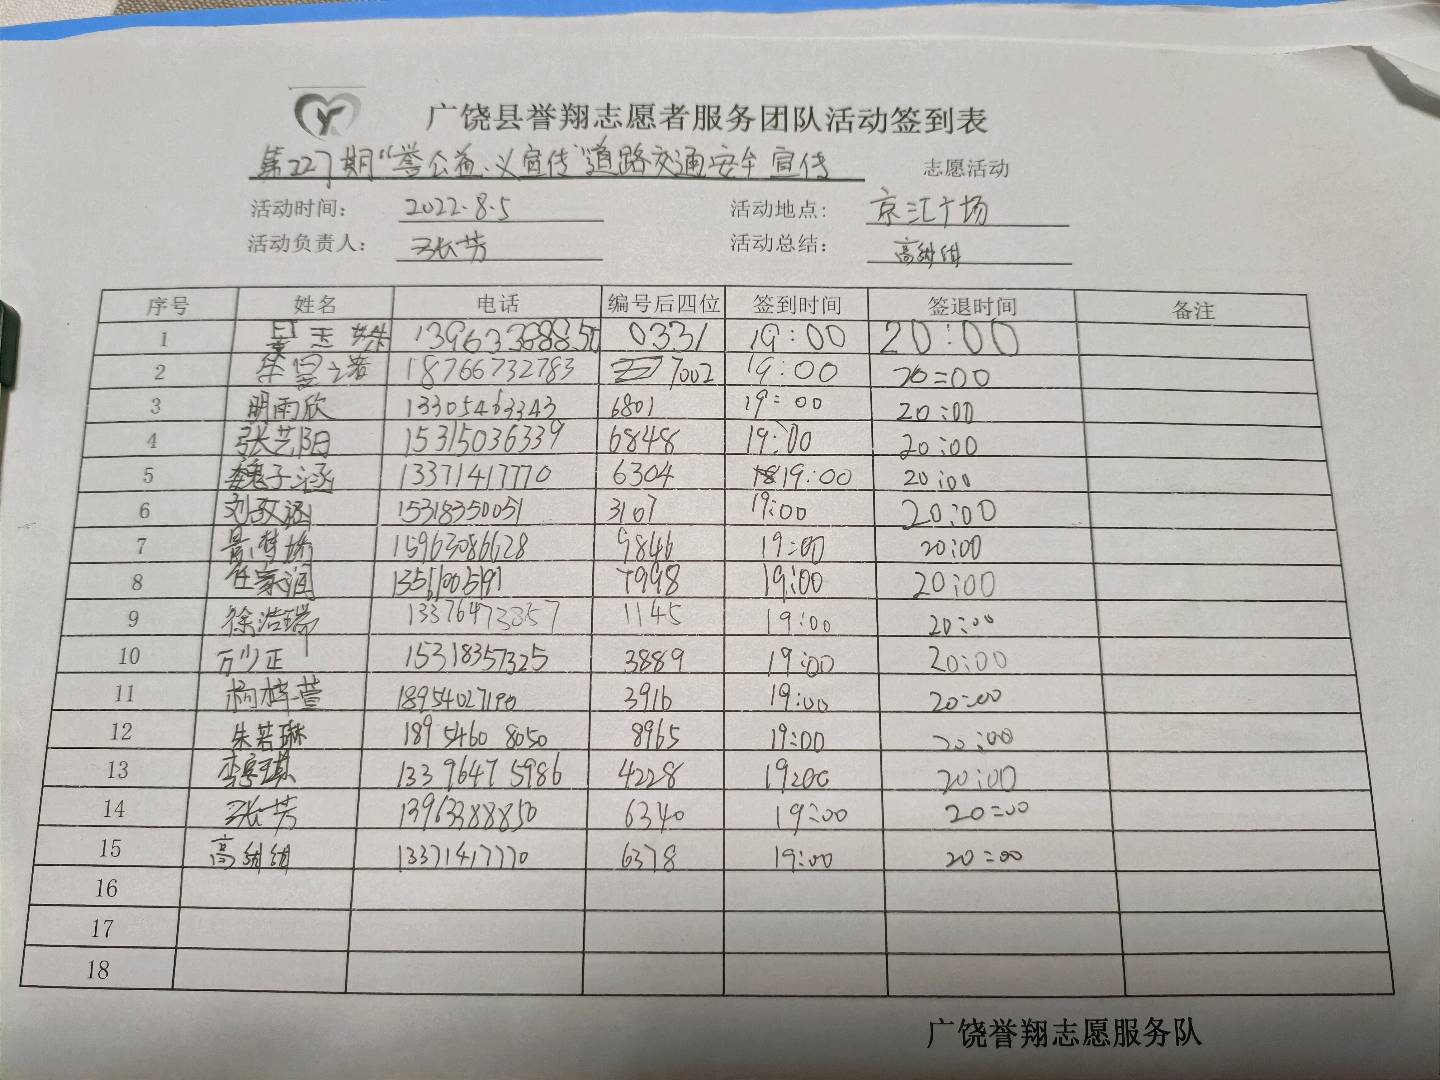 广饶县誉翔志愿者服务团队活动签到表
第227期“誉公益、义宣传”道路交通安全宣传 志愿活动
活动时间: 2022.8.5 活动地点: 京江广场
活动负责人: 张芳 活动总结: 高甜甜
序号 姓名 电话 编号后四位 签到时间 签退时间 备注
1 0331 19:00 20:00
2 18766732783 7002 19:00 20:00
3 明雨欣 13305463343 6801 19:00 20:00
4 张艺阳 15315036339 6848 19:00 20:00
5 魏子涵 13371417770 6304 19:00 20:00
6 刘政涵 15318350051 3107 19:00 20:00
7 15963086628 9846 19:00 20:00
8 任家润 7998 19:00 20:00
9 徐浩瑞 13376473857 1145 19:00 20:00
10 万少正 15318357325 3889 19:00 20:00
11 杨梓萱 18954027190 3916 19:00 20:00
12 朱若琳 189 5460 8050 8965 19:00 20:00
13 339 6475986 4228 19:00 20:00
14 张芳 13963388850 6340 19:00 20:00
15 高甜甜 13371417770 6378 19:00 20:00
16
17
18
广饶誉翔志愿服务队